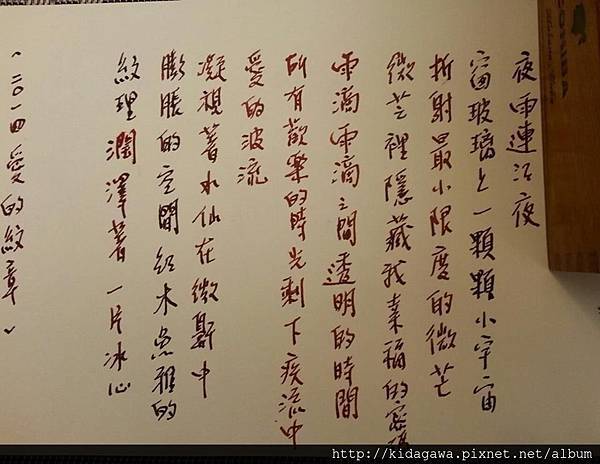 夜雨連江夜
窗玻璃上一顆顆小宇宙
折射最小限度的微芒
微芒裡隱藏我幸福的密
雨滴雨滴之間透明的時間
所有歡樂的時光剩下疾流中
愛的波流
凝視著水仙在微中
膨脹的空間 紅木典雅的
紋理潤澤著一片冰心
～二〇一四愛的紋章～
http://kidagawa.pixnet.net/album